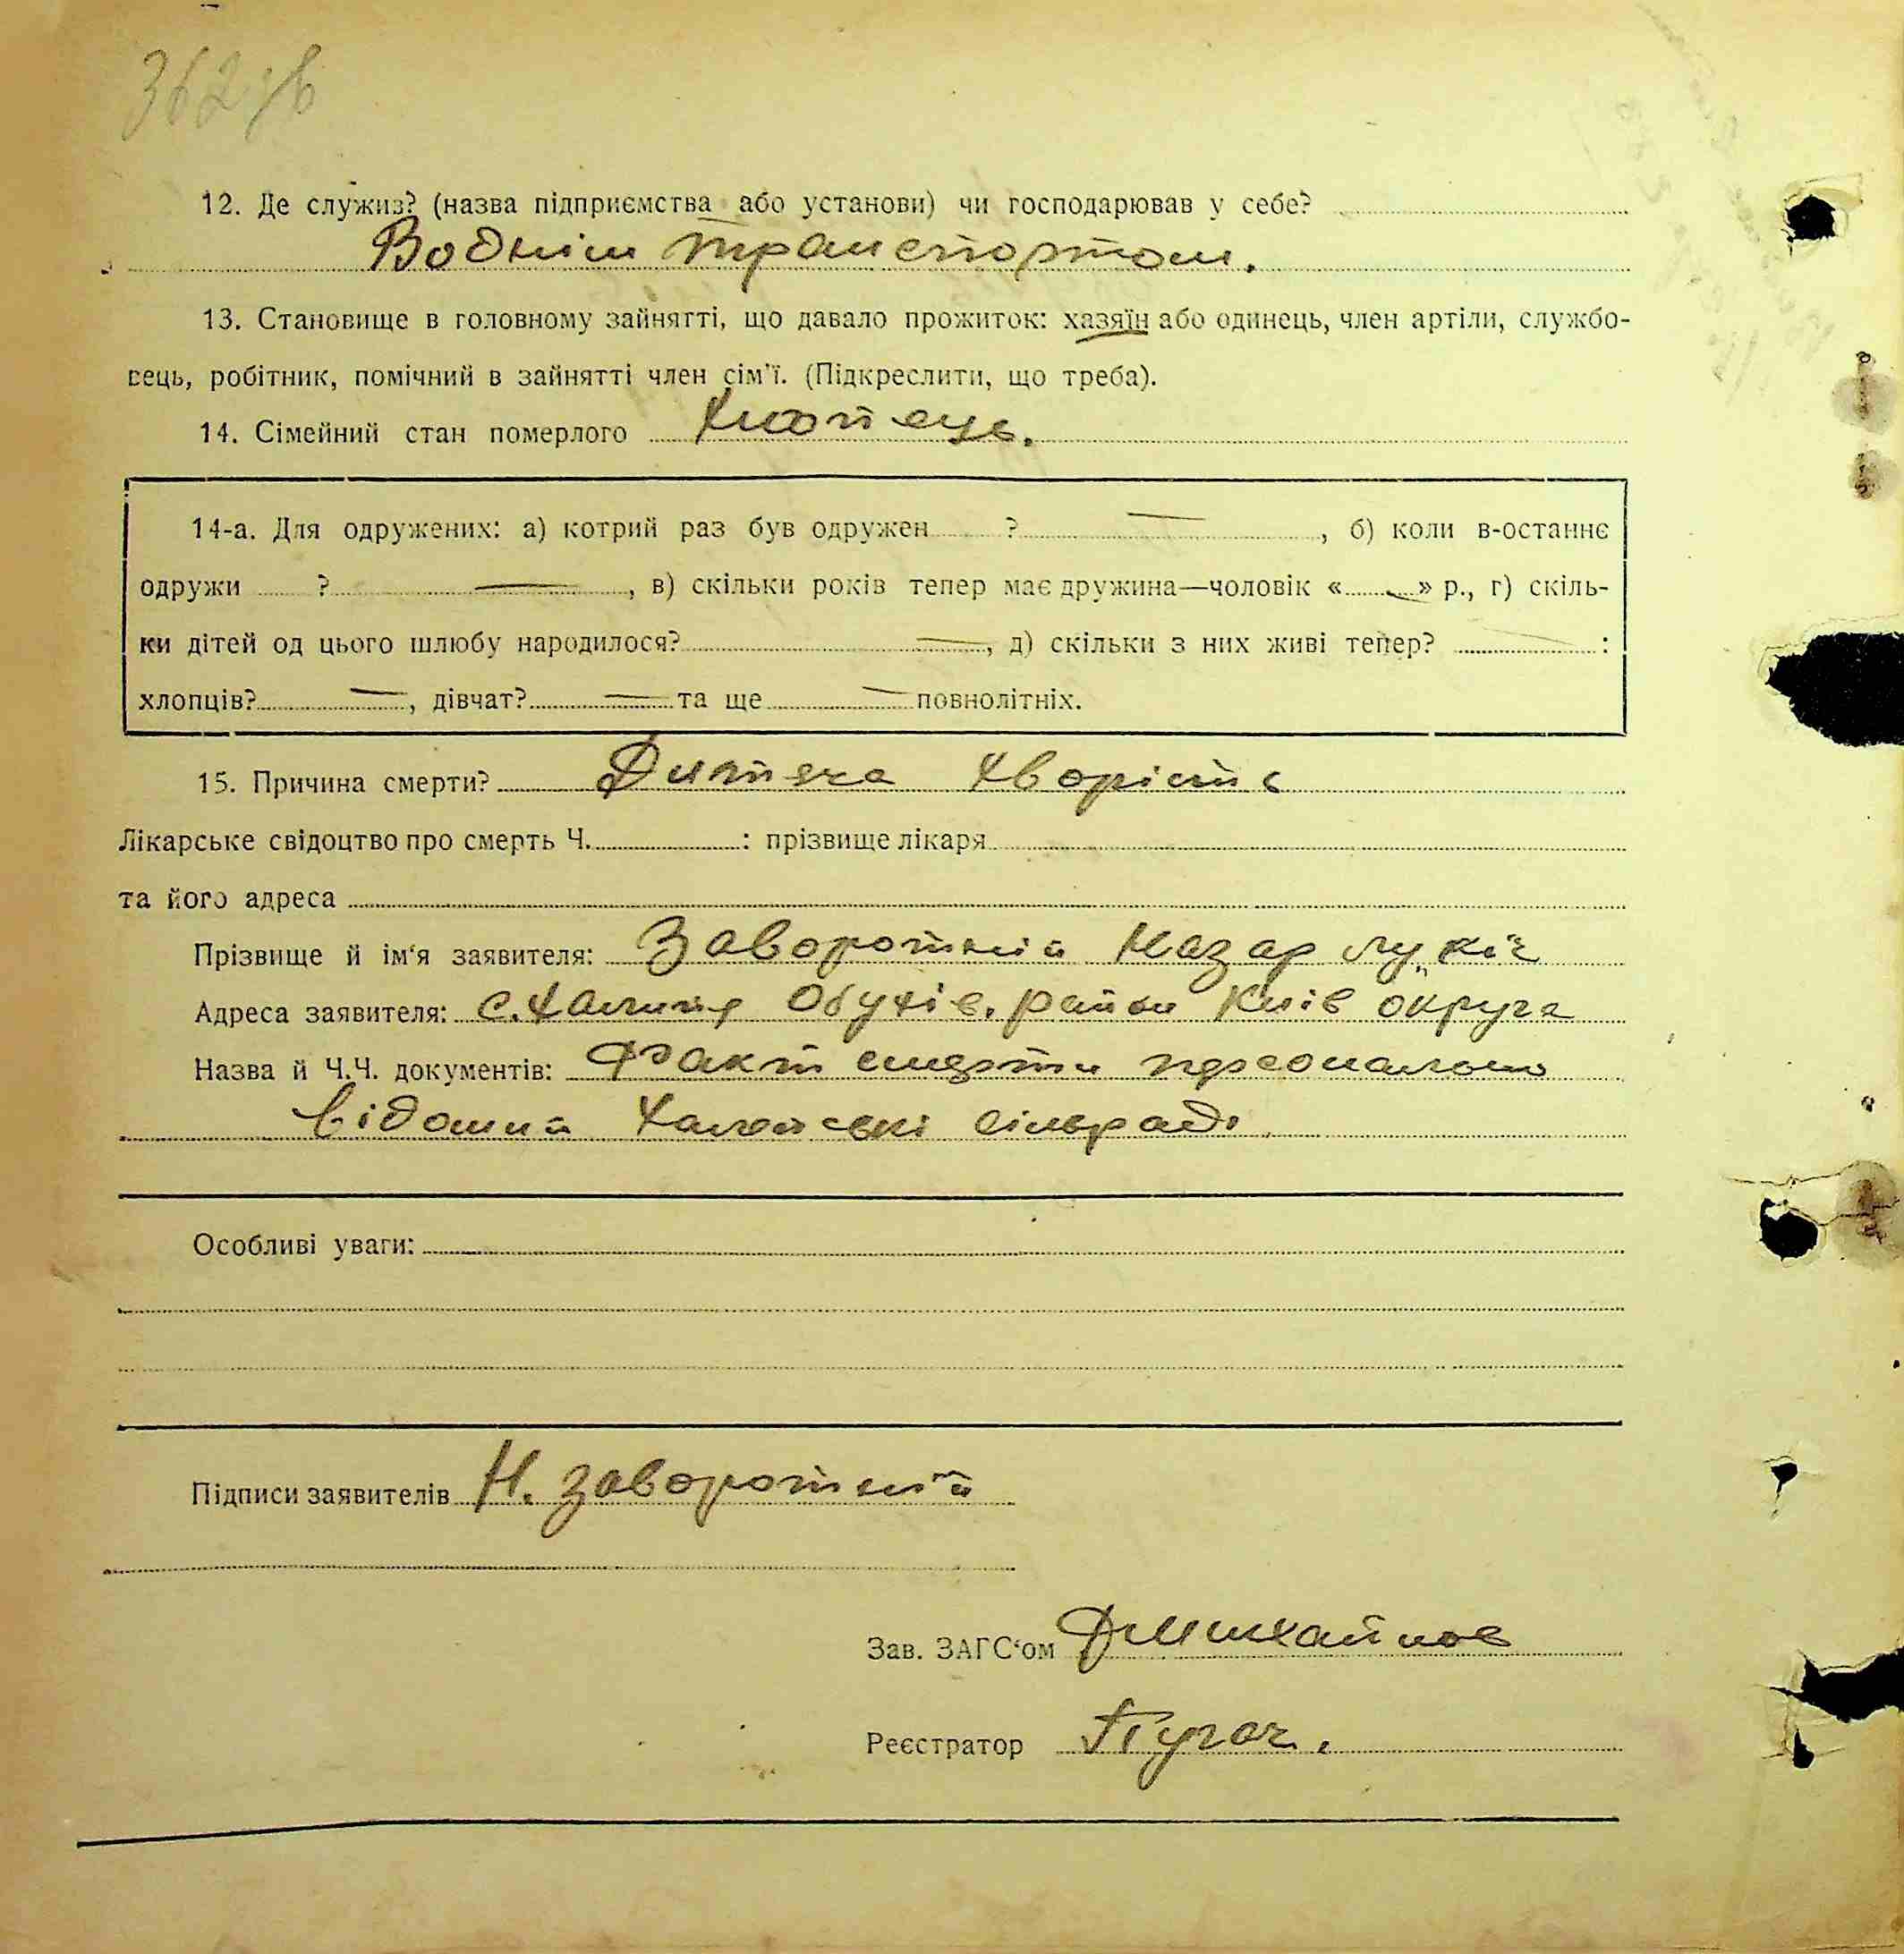 362 зв
12. Де служив? (назва підприємства або установи) чи господарював у себе?
Воднім транспортом.
13. Становище в головному зайнятті, що давало прожиток: хазяїн або одинець, член артіли, службо-
вець, робітник, помічний в зайнятті член сім'ї. (Підкреслити, що треба).
14. Сімейний стан померлого Хлопець.
14-а. Для одружених: а) котрий раз був одружен ? —, б) коли в-останнє
одружи ? —, в) скільки років тепер має дружина—чоловік « — » р., г) скіль-
ки дітей од цього шлюбу народилося? —, д) скільки з них живі тепер? — :
хлопців? —, дівчат? — та ще — повнолітніх.
15. Причина смерти? Дитяча хворість
Лікарське свідоцтво про смерть Ч. : прізвище лікаря
та його адреса
Прізвище й ім'я заявителя: Заворотній Назар Лукіч
Адреса заявителя: с. Халипʼя Обухів. район Київ округа
Назва й Ч.Ч. документів: Факт смерти персонально
відомий сільраді
Особливі уваги:
Підписи заявителів Н. Заворотній
Зав. ЗАГС'ом Михайлов
Реєстратор Пугач.